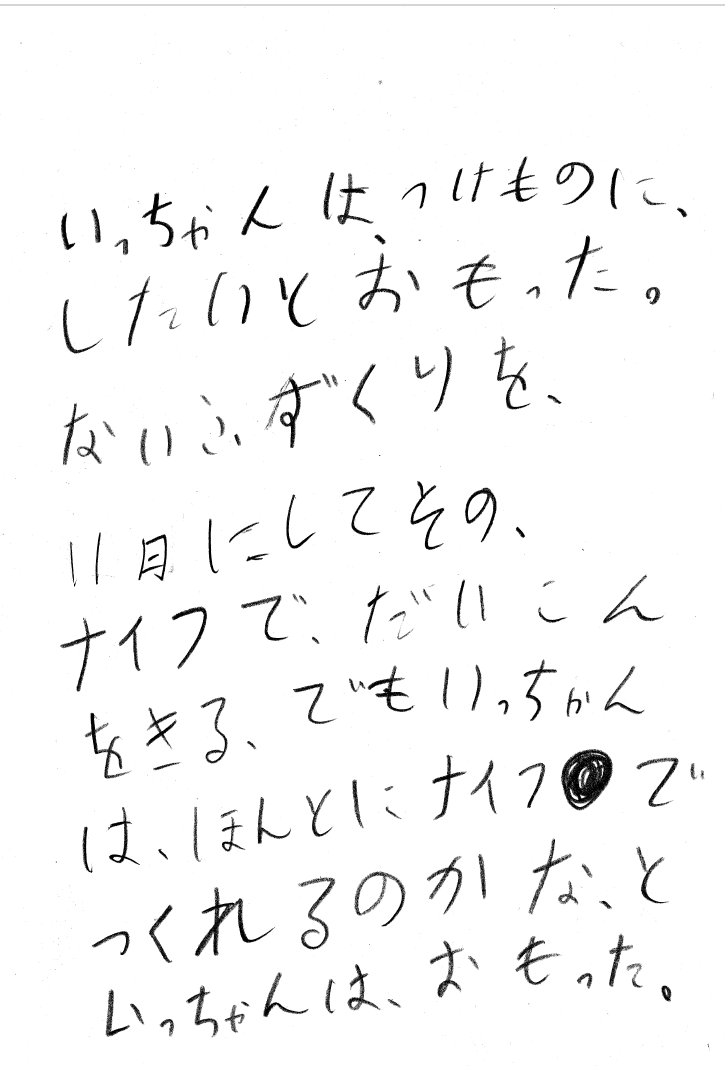 いっちゃんは、つけものに、
したいとおもった。
ないふずくりを、
11日にしてその、
ナイフで、だいこん
をきる、でもいっちゃん
は、ほんとにナイフで
つくれるのかな、と
いっちゃんは、おもった。